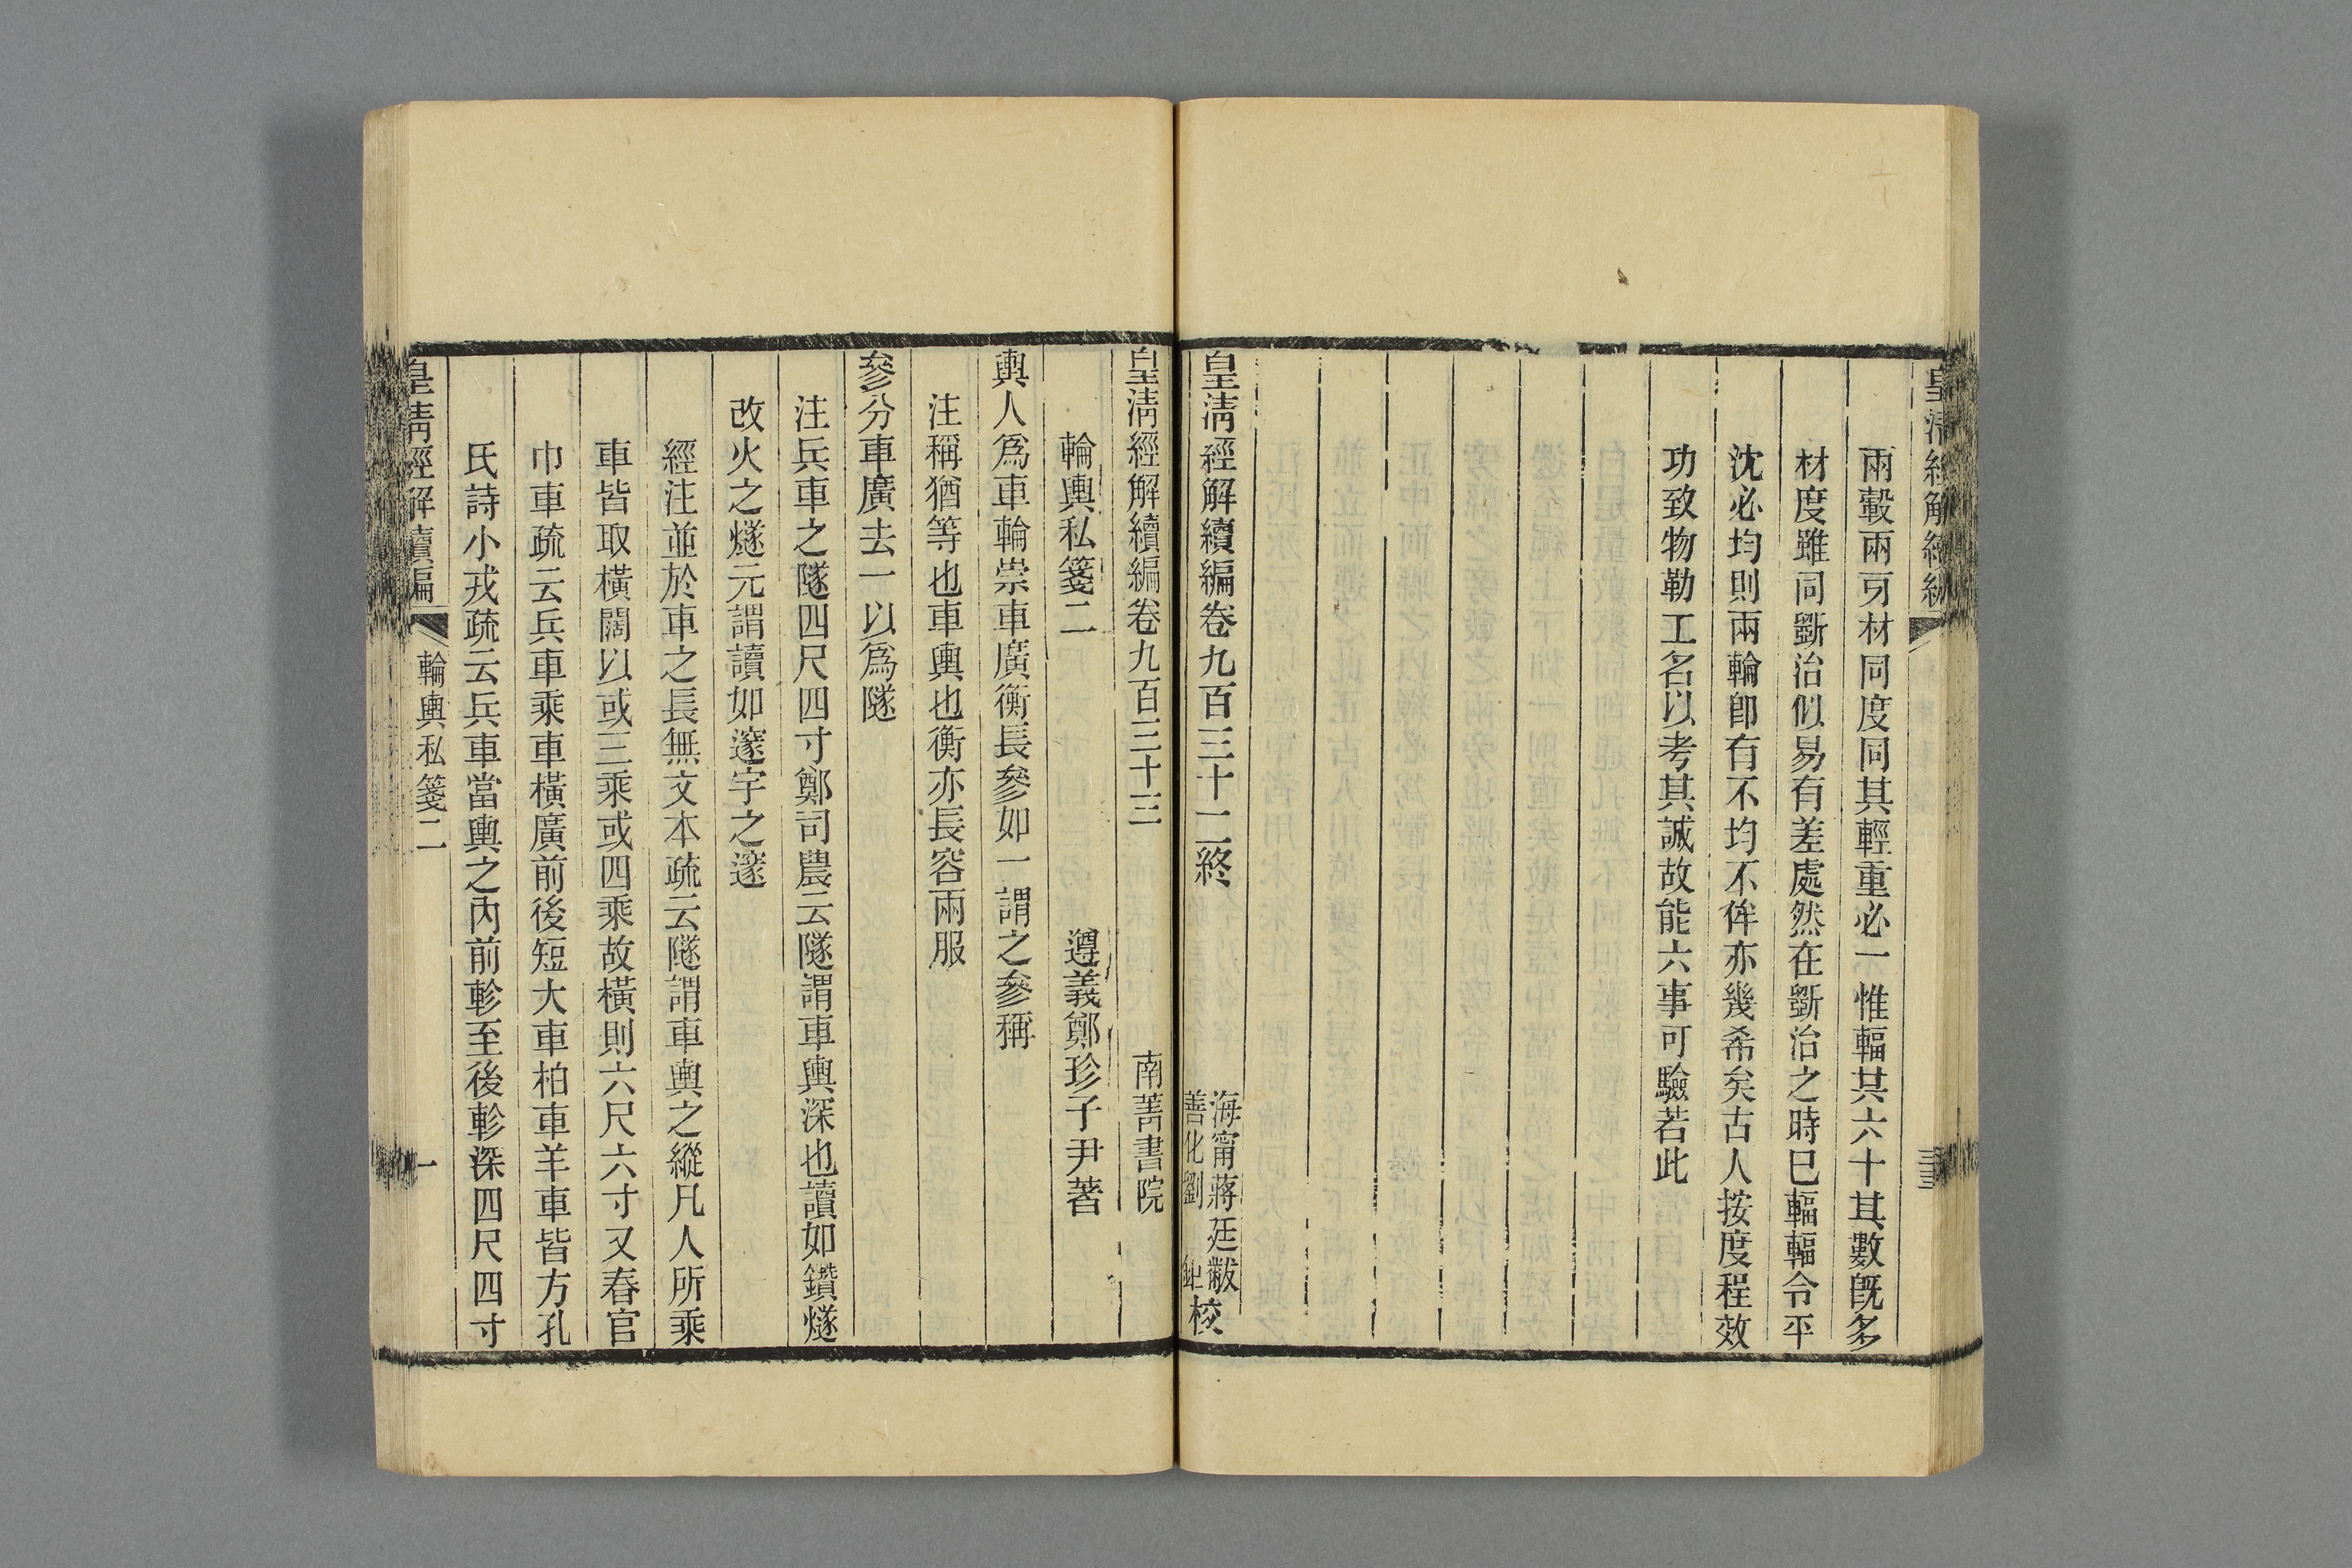 皇清經解續編
兩轂兩㪽材同度同其輕重必一惟輻其六十其數旣多
材度雖同斵治似易有差處然在斵治之時巳輻輻令平
沈必均則兩輪卽有不均不侔亦幾希矣古人按度程效
功致物勒工名以考其誠故能六事可驗若此
皇清經解續編卷九百三十二終
海甯蔣廷黻
善化劉鉅校
皇清經解續編卷九百三十三
南菁書院
輪輿私箋二
遵義鄭珍子尹著
輿人爲車輪崇車廣衡長參如一謂之參稱
注稱猶等也車輿也衡亦長容兩服
參分車廣去一以爲隧
注兵車之隧四尺四寸鄭司農云隧謂車輿深也讀如鑽燧
改火之燧元謂讀如邃宇之邃
經注並於車之長無文本疏云隧謂車輿之縱凡人所乘
車皆取橫闊以或三乘或四乘故橫則六尺六寸又春官
巾車疏云兵車乘車橫廣前後短大車柏車羊車皆方孔
氏詩小戎疏云兵車當輿之內前軫至後軫深四尺四寸
皇清經解續編
輪輿私箋二
一